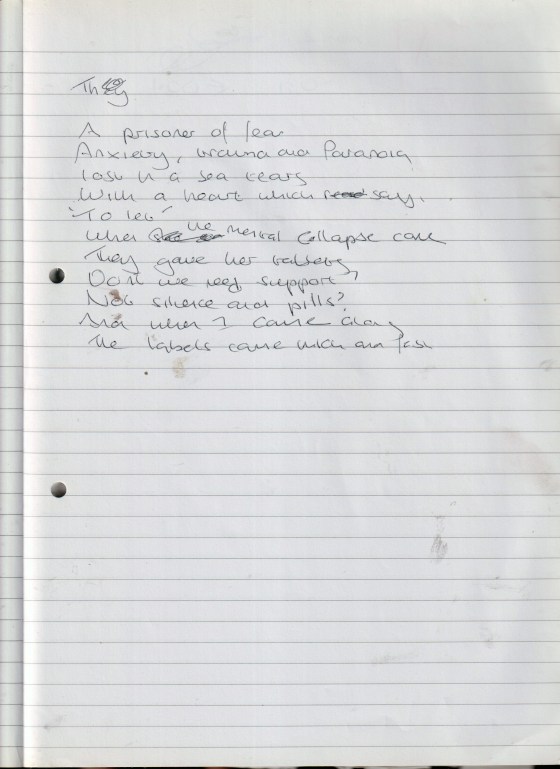 They
A prisoner of fear
Anxiety, trauma and Paranoia
Lost in a sea tears
With a heart which says.
"To let"
When the mental collapse came
They gave her
Don't we need support,
Not silence and pills?
And when I came along
The labels came thick and fast